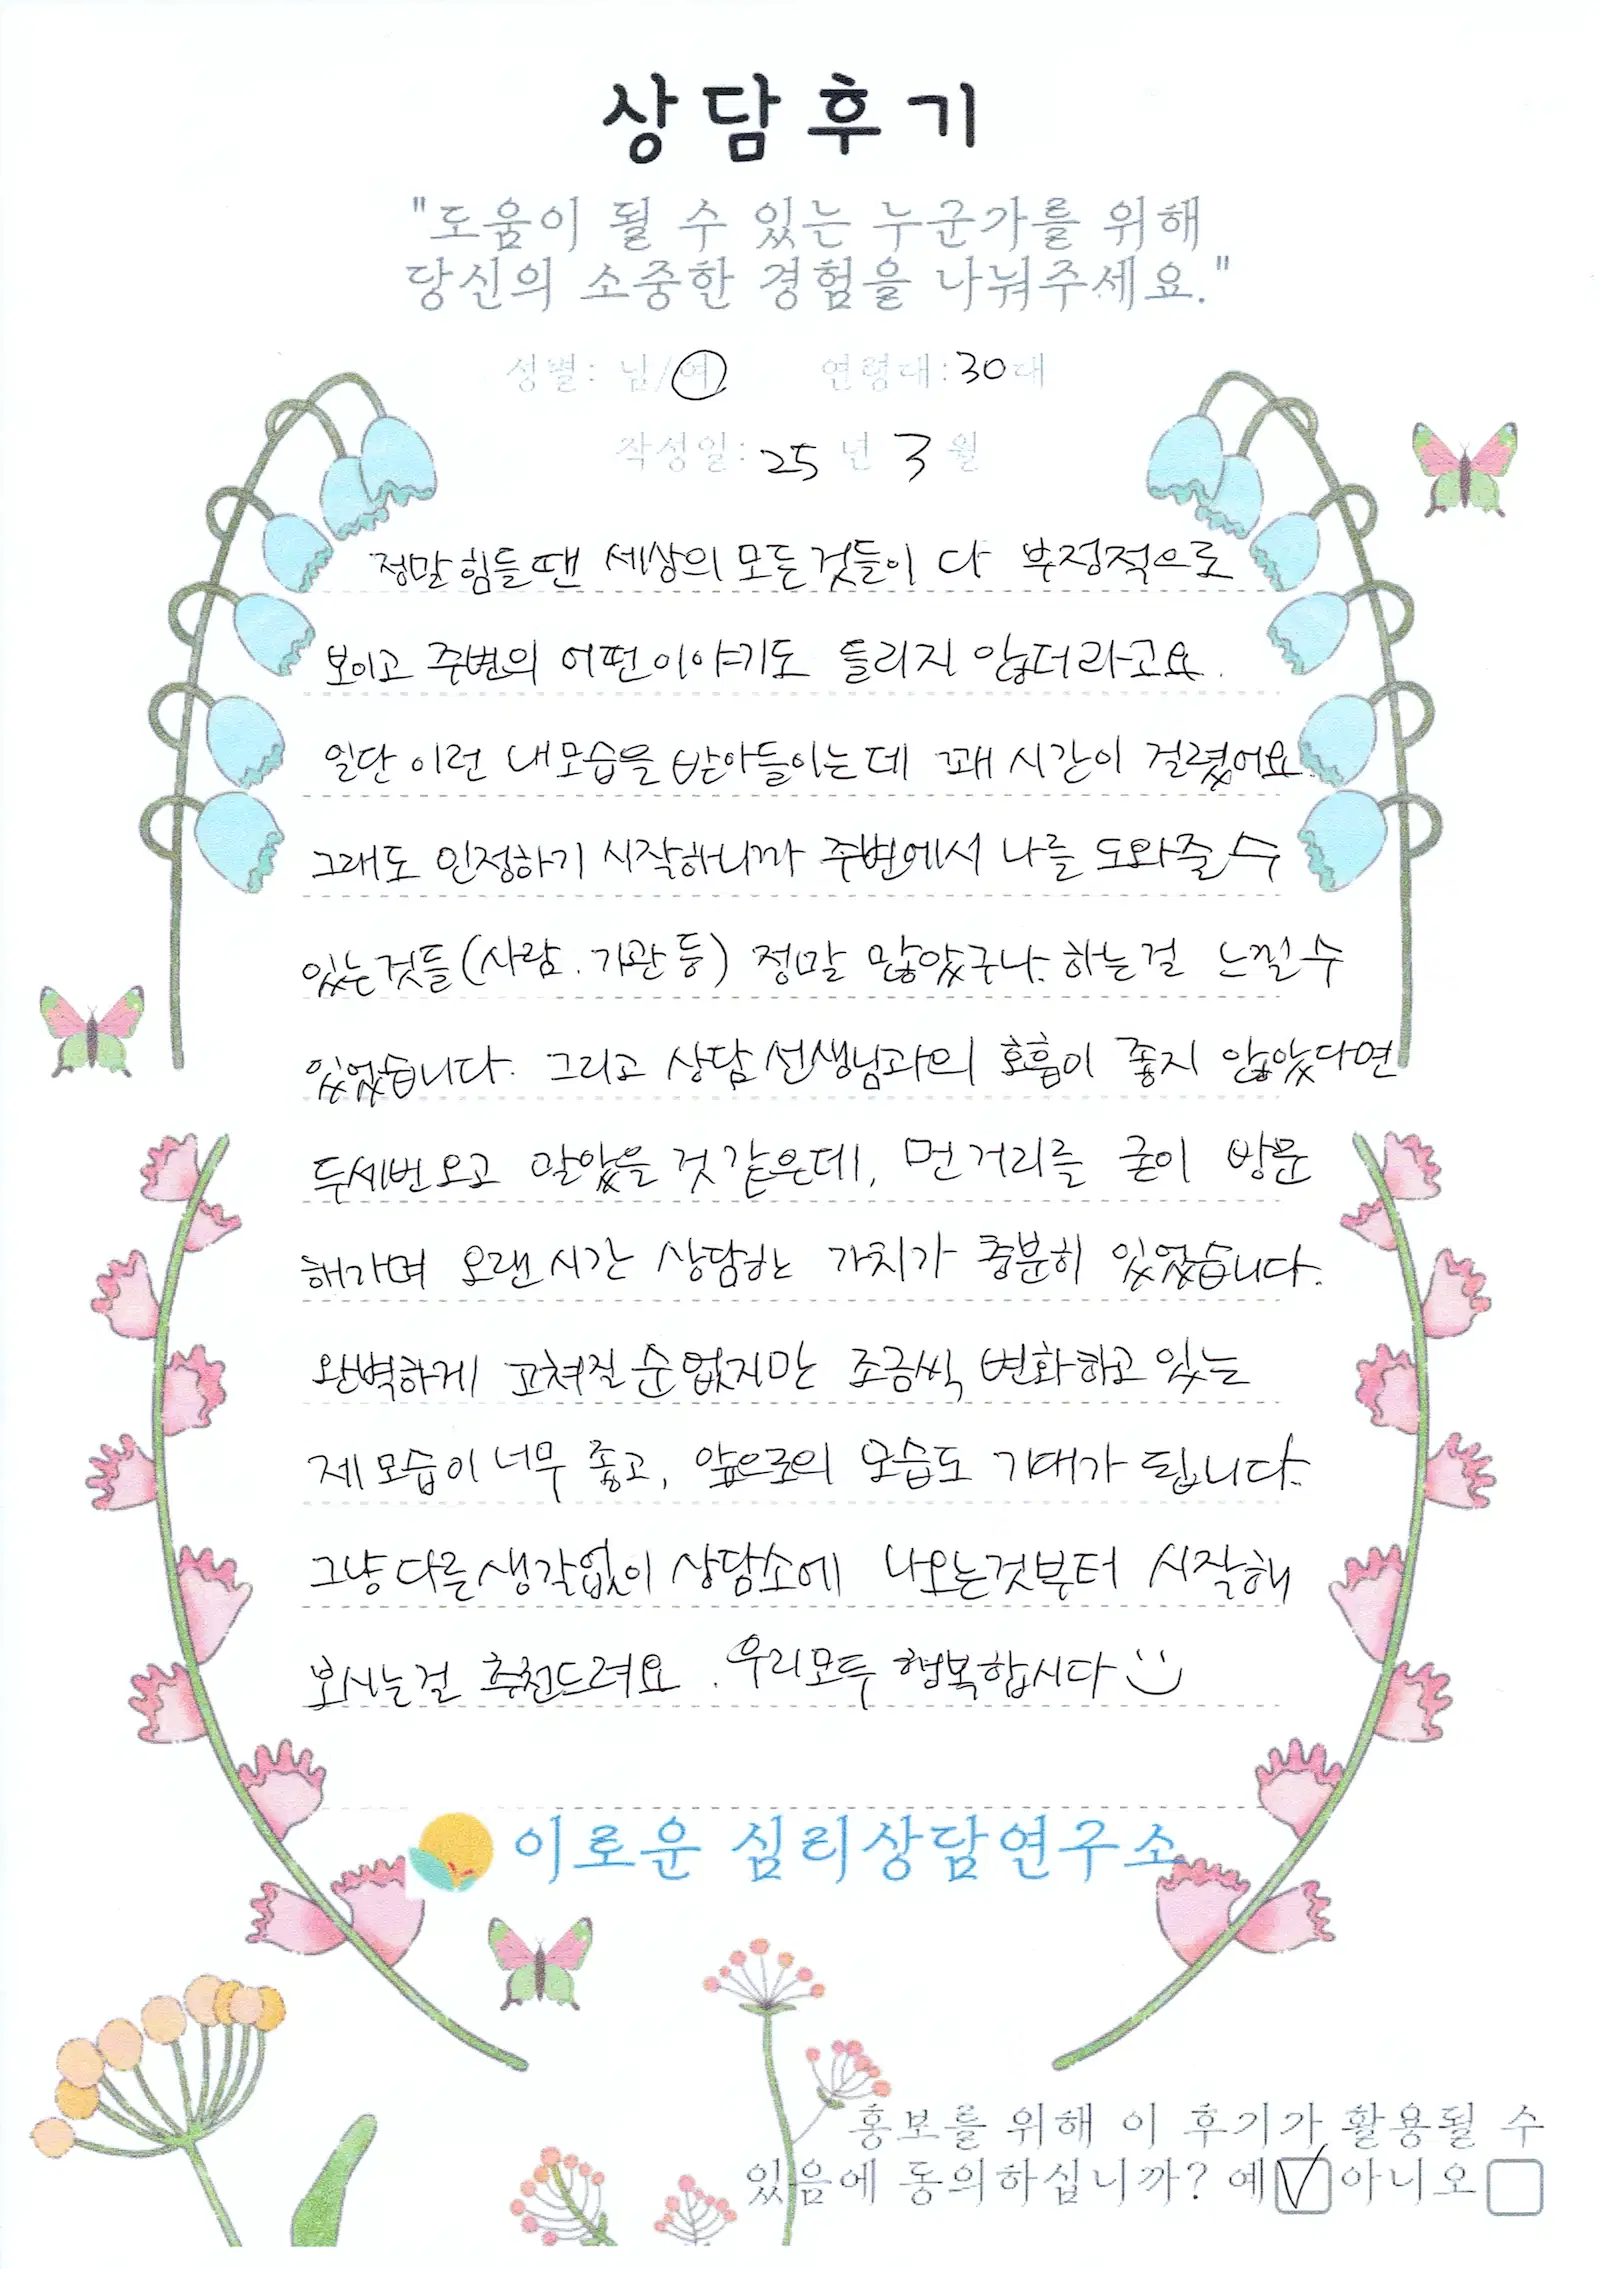 상담후기
"도움이 될 수 있는 누군가를 위해
당신의 소중한 경험을 나눠주세요."
성별: 남/여 연령대: 30대
작성일: 25 년 3 월
정말 힘들땐 세상의 모든것들이 다 부정적으로
보이고 주변의 어떤 이야기도 들리지 않더라고요.
일단 이런 내모습을 받아들이는데 꽤 시간이 걸렸어요.
그래도 인정하기 시작하니까 주변에서 나를 도와줄 수
있는것들(사람. 기관 등) 정말 많았구나. 하는걸 느낄수
있었습니다. 그리고 상담 선생님과의 호흡이 좋지 않았다면
두세번 오고 말았을 것 같은데, 먼 거리를 굳이 방문
해가며 오랜 시간 상담한 가치가 충분히 있었습니다.
완벽하게 고쳐질 순 없지만 조금씩 변화하고 있는
제 모습이 너무 좋고, 앞으로의 모습도 기대가 됩니다.
그냥 다른생각없이 상담소에 나오는것부터 시작해
보시는걸 추천드려요. 우리모두 행복합시다
이로운 심리상담연구소
홍보를 위해 이 후기가 활용될 수
있음에 동의하십니까? 예 아니오